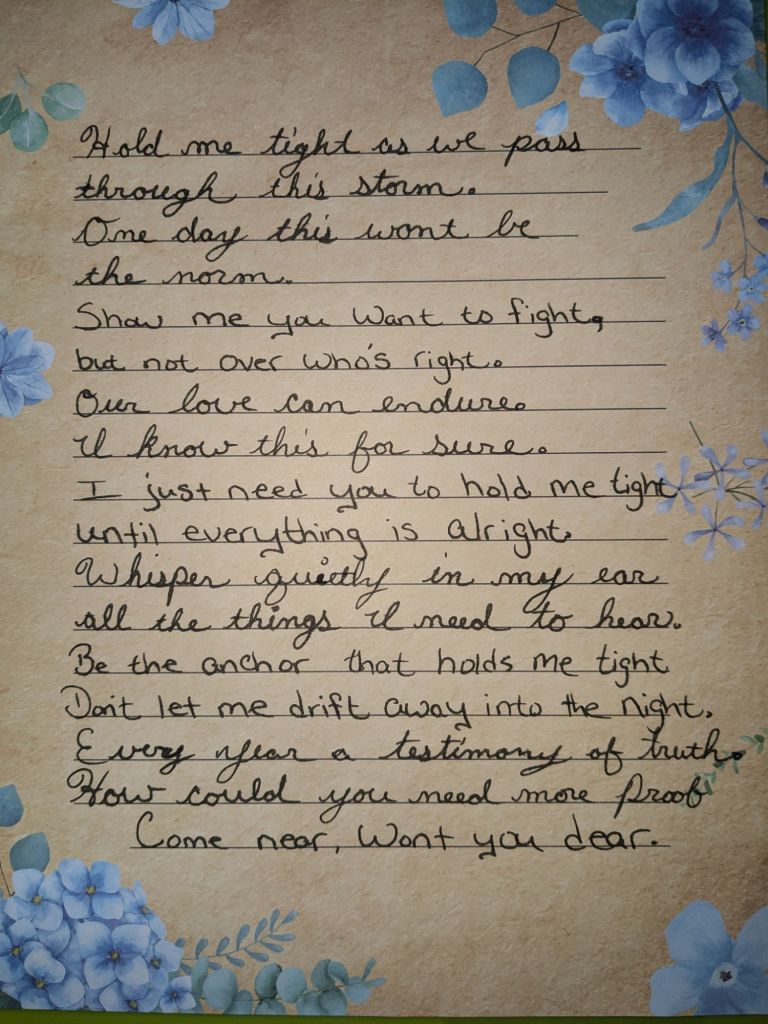 Hold me tight as we pass
through this storm.
One day this wont be
the norm.
Show me you want to fight,
but not over who's right.
Our love can endure.
I know this for sure.
I just need you to hold me tight
until everything is alright.
Whisper quietly in my ear
all the things I need to hear.
Be the anchor that holds me tight
Don't let me drift away into the night.
Every year a testimony of truth.
How could you need more proof
Come near, Wont you dear.